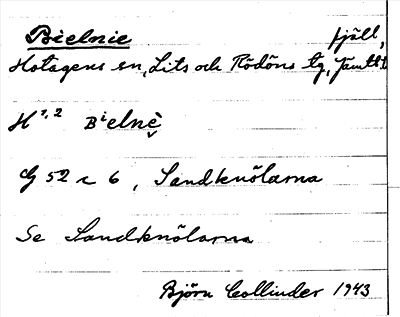 Bielnie fjäll,
Hotagens sn, Lits och Rödöns tg, Jämtl.
H 1,2 Bielnè̬
G 52 c 6, Sandknölarna
Se Sandknölarna
Björn Collinder 1943